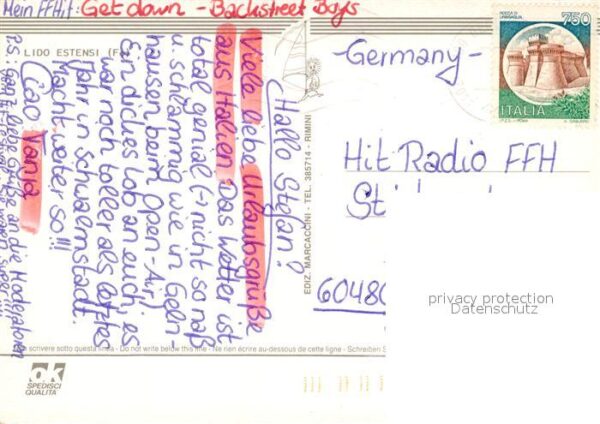 Mein FFHit: Get down - Backstreet Boys
LIDO ESTENSI (FE)
Hallo Stefan!
Viele liebe Urlaubsgrüße
aus Italien. Das Wetter ist
total genial (-) nicht so naß
u. schlammig wie in Geln-
hausen beim Open-Air)
Ein dickes Lob an euch, es
war noch toller als letztes
Jahr in Schwalmstadt.
Macht weiter so!!!
Ciao Tanja
P.S.: Ganz liebe Grüße an die Moderatoren
waren super!!!!
EDIZ. MARCACCINI - TEL. 385714 - RIMINI
-Germany-
ROCCA DI
URBISAGLIA
750
ITALIA
I.P.Z.S. - ROMA
Hit Radio FFH
St
60480
privacy protection
Datenschutz
Ne scrivere sotto questa linea - Do not write below this line - Ne rien écrire au-dessous de cette ligne - Schreiben S
ok
SPEDISCI
QUALITA